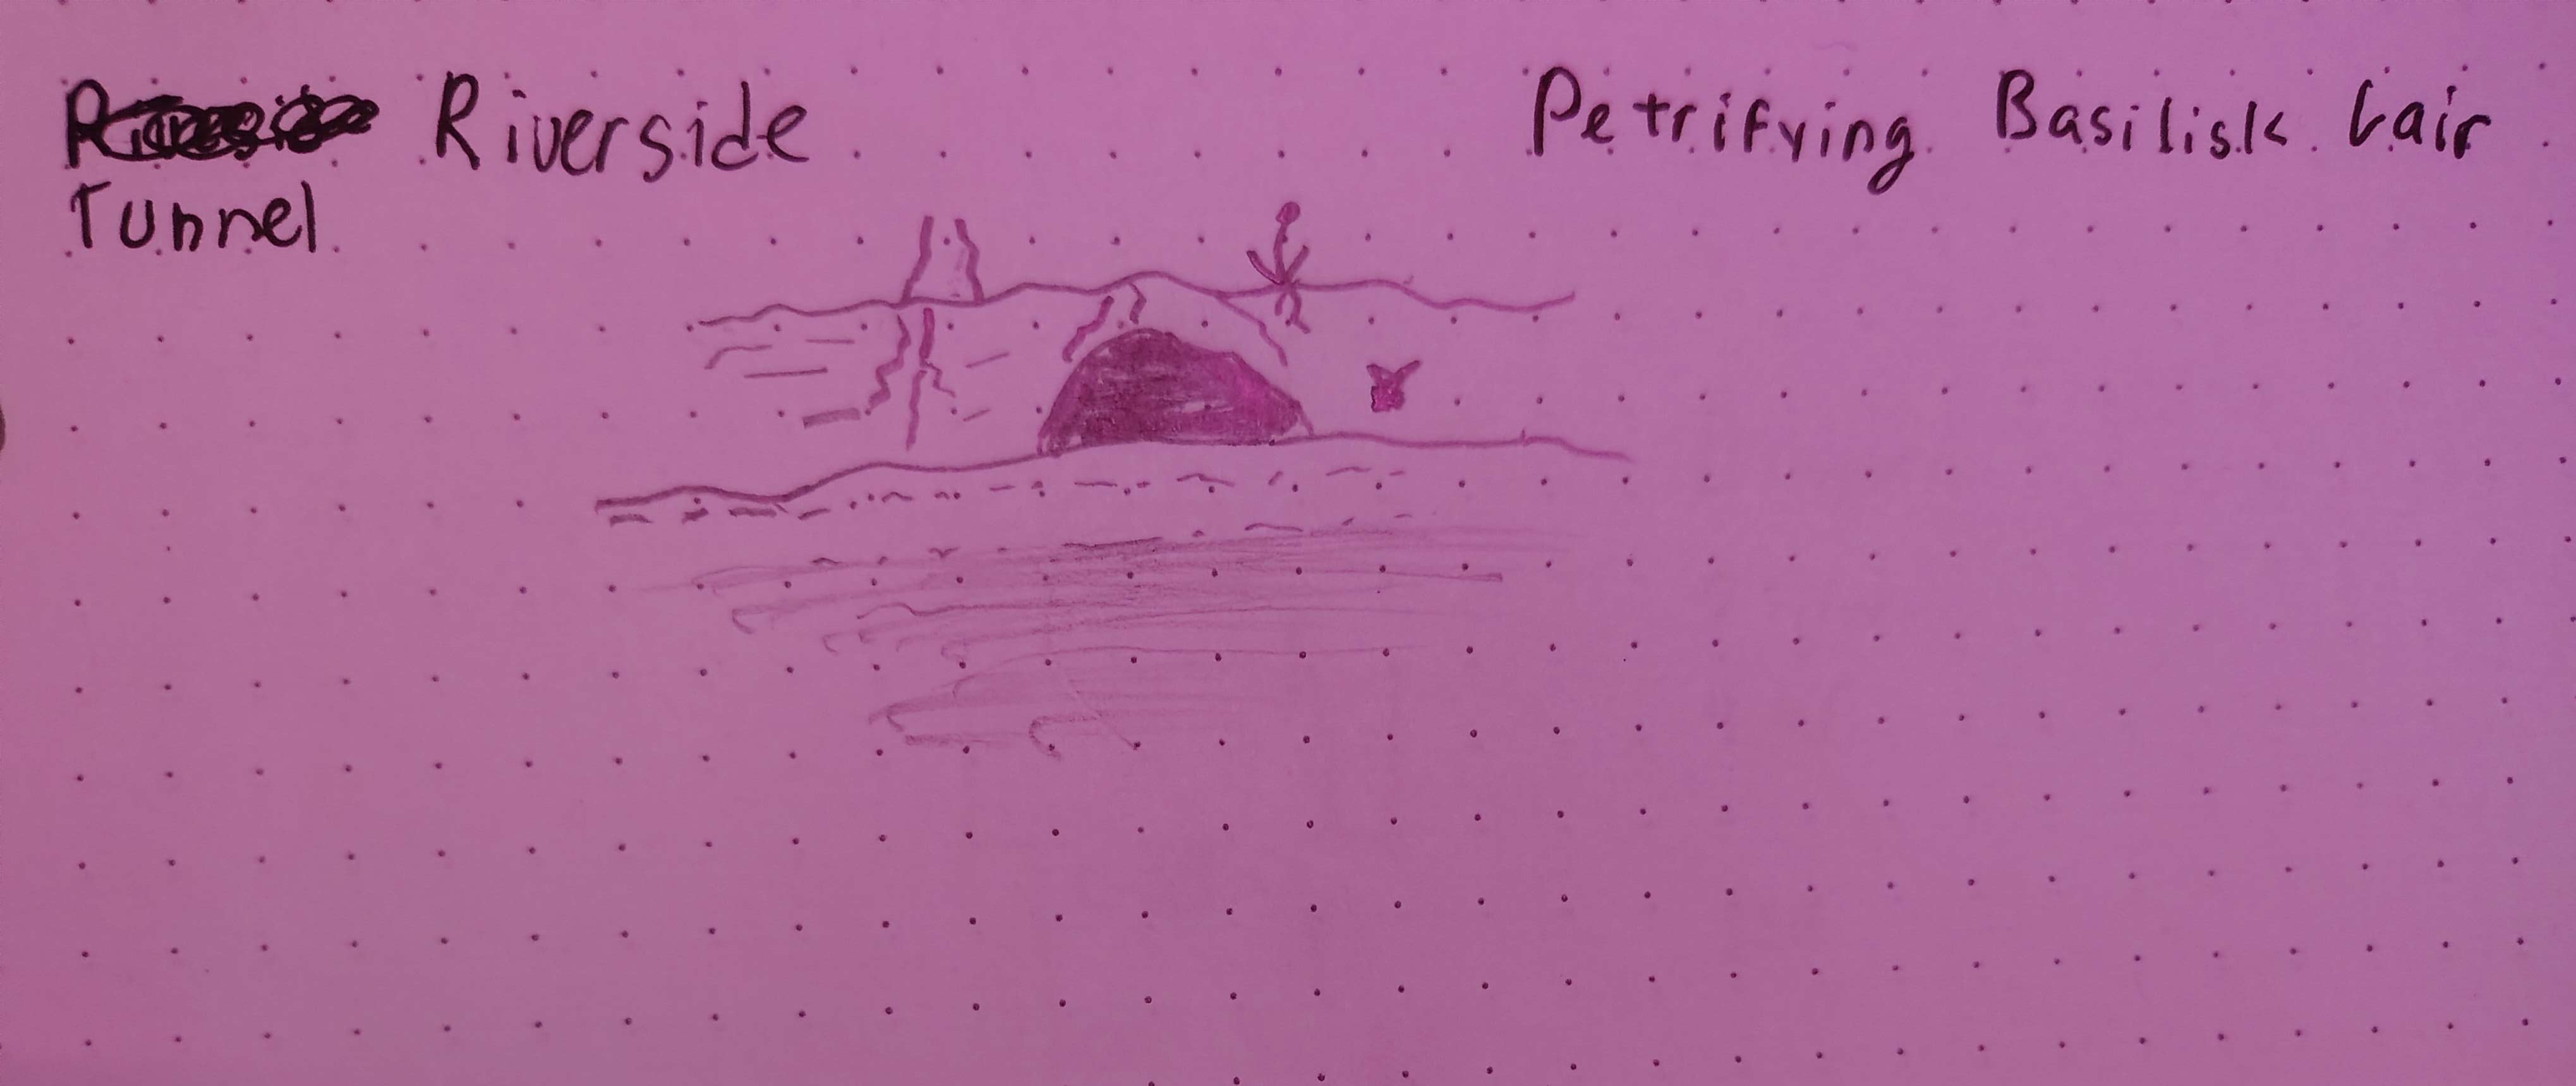 Riverside
Tunnel
Petrifying Basilisk Lair